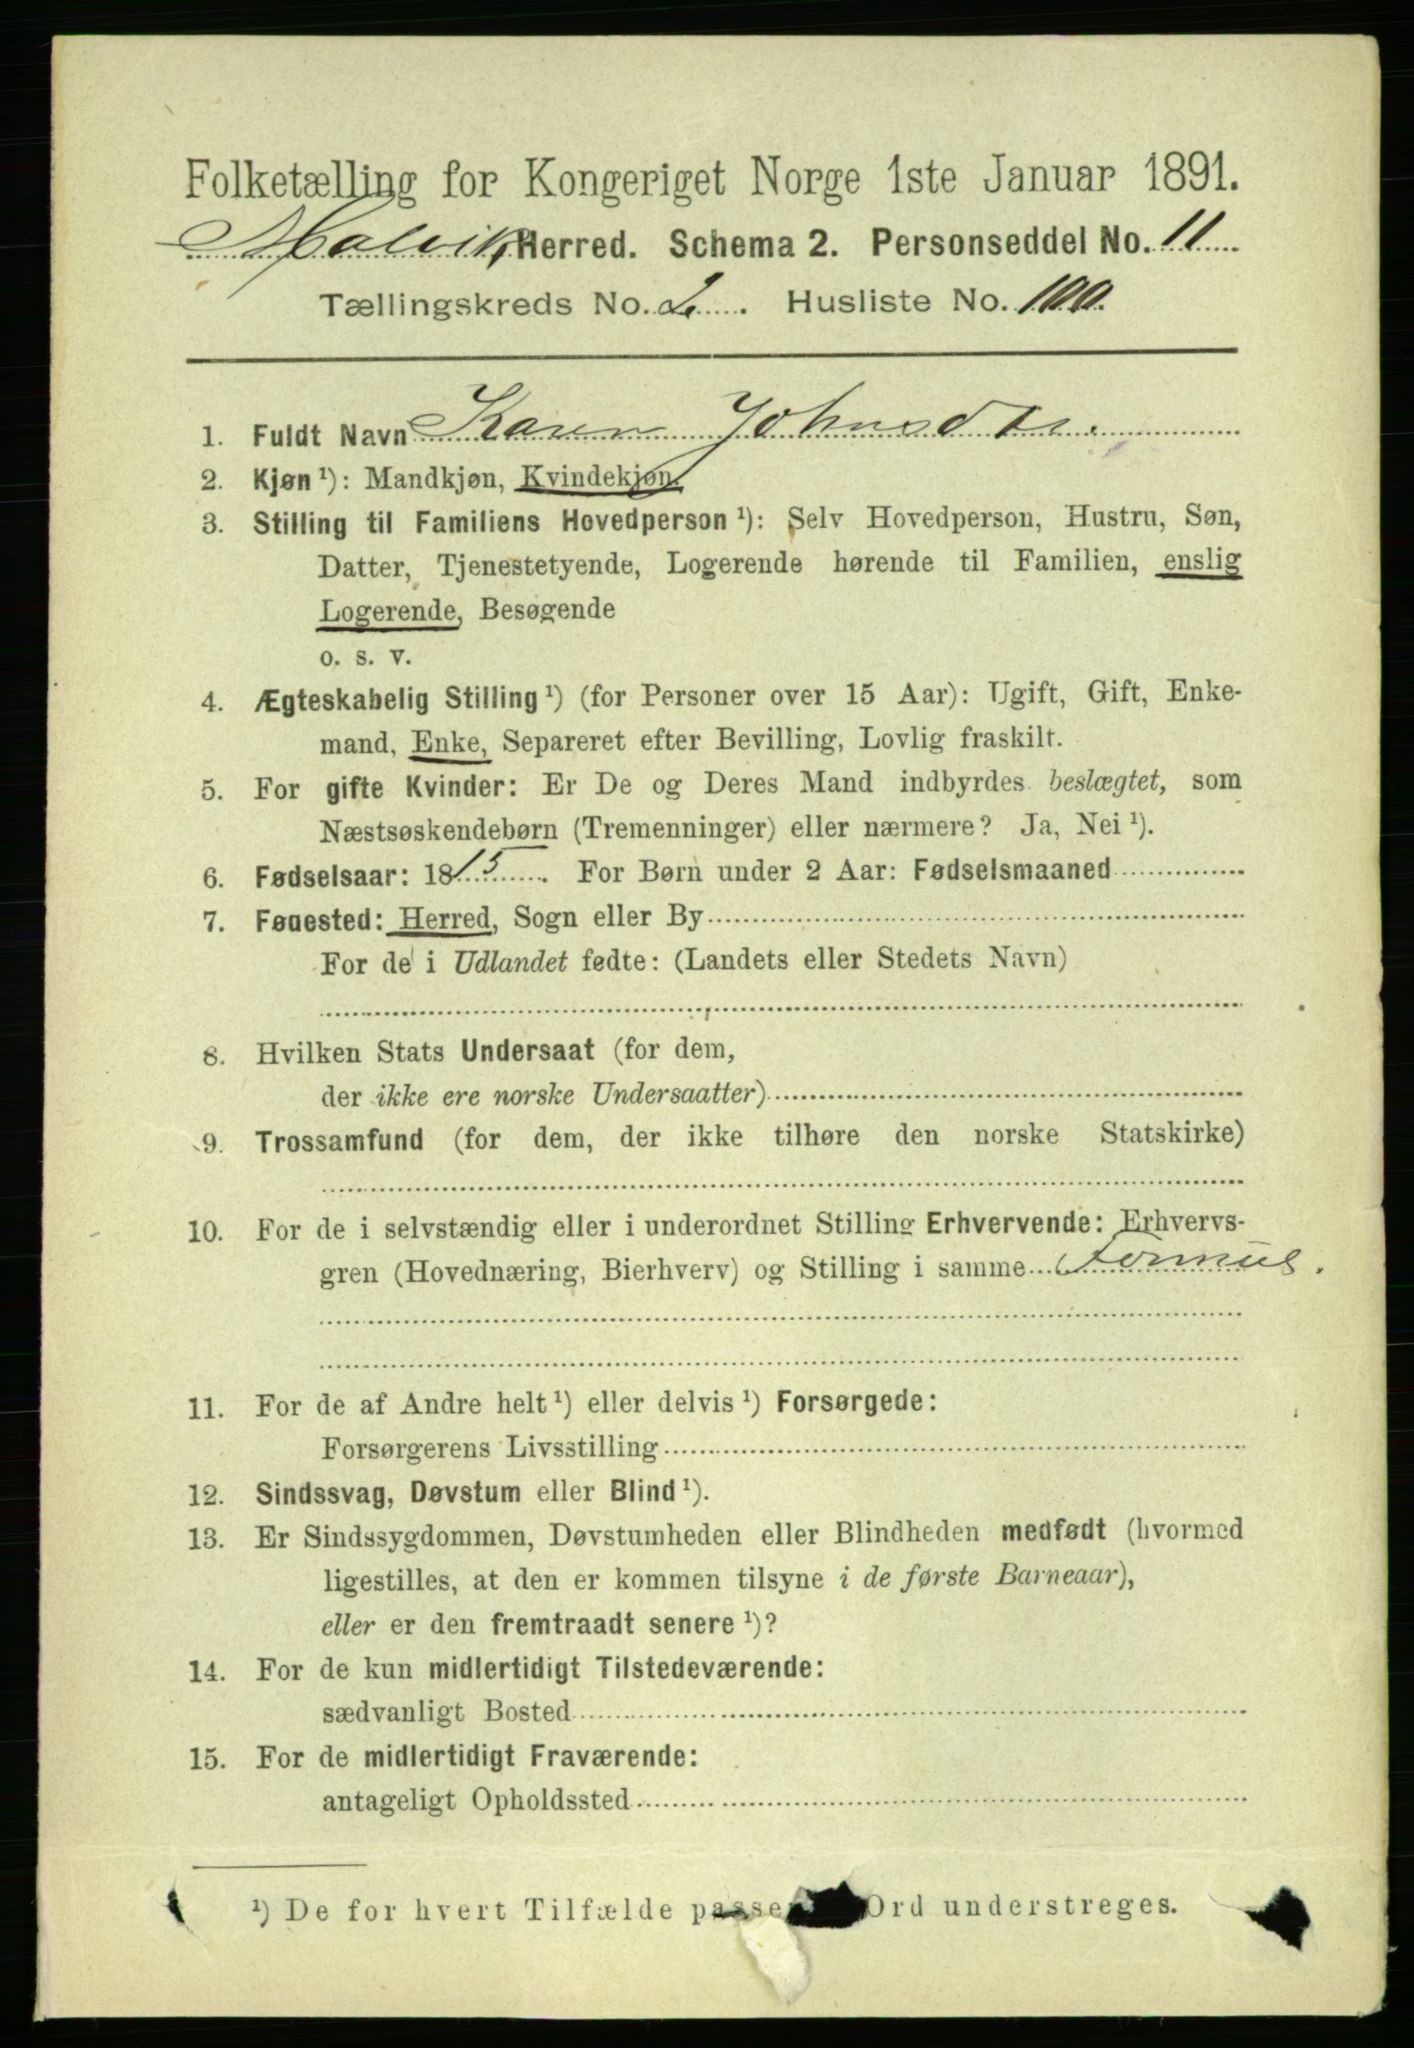 Folketælling for Kongeriget Norge 1ste Januar 1891.
Malvik Herred. Schema 2. Personseddel No. 11
Tællingskreds No. 2. Husliste No. 100.
1. Fuldt Navn Karen Johnsdtr.
2. Kjøn ¹): Mandkjøn, Kvindekjøn.
3. Stilling til Familiens Hovedperson ¹): Selv Hovedperson, Hustru, Søn,
Datter, Tjenestetyende, Logerende hørende til Familien, enslig
Logerende, Besøgende
o. s. v.
4. Ægteskabelig Stilling ¹) (for Personer over 15 Aar): Ugift, Gift, Enke-
mand, Enke, Separeret efter Bevilling, Lovlig fraskilt.
5. For gifte Kvinder: Er De og Deres Mand indbyrdes beslægtet, som
Næstsøskendebørn (Tremenninger) eller nærmere? Ja, Nei ¹).
6. Fødselsaar: 1815. For Børn under 2 Aar: Fødselsmaaned
7. Fødested: Herred, Sogn eller By
For de i Udlandet fødte: (Landets eller Stedets Navn)
8. Hvilken Stats Undersaat (for dem,
der ikke ere norske Undersaatter)
9. Trossamfund (for dem, der ikke tilhøre den norske Statskirke)
10. For de i selvstændig eller i underordnet Stilling Erhvervende: Erhvervs-
gren (Hovednæring, Bierhverv) og Stilling i samme Formue.
11. For de af Andre helt ¹) eller delvis ¹) Forsørgede:
Forsørgerens Livsstilling
12. Sindssvag, Døvstum eller Blind ¹).
13. Er Sindssygdommen, Døvstumheden eller Blindheden medfødt (hvormed
ligestilles, at den er kommen tilsyne i de første Barneaar),
eller er den fremtraadt senere ¹)?
14. For de kun midlertidigt Tilstedeværende:
sædvanligt Bosted
15. For de midlertidigt Fraværende:
antageligt Opholdssted
¹) De for hvert Tilfælde passe Ord understreges.